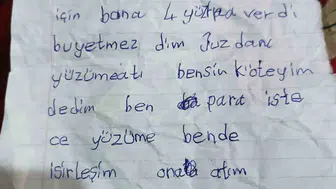 için bana 4 yüzlira verdi
bu yetmez dim 3uz danı
yüzümeatı bensin köteyim
dedim ben para iste
ce yüzüme bende
isirleşim onata atım